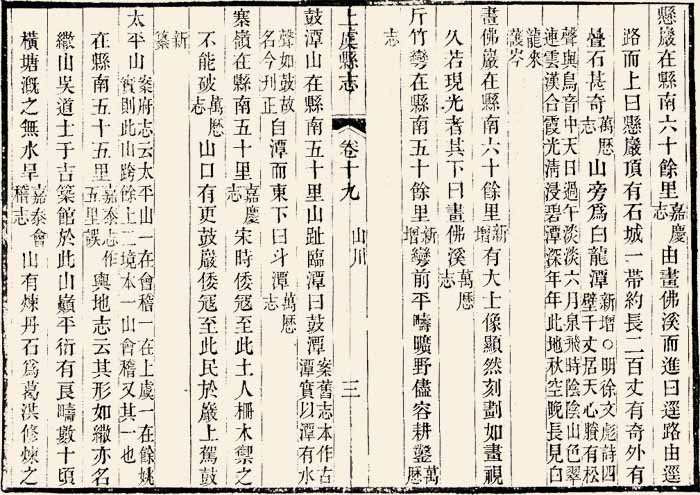 懸巖在縣南六十餘里嘉慶志由畫佛溪而進曰逕路由逕
路而上曰懸巖頂有石城一帶約長二百丈有奇外有
疊石甚奇萬歷志山旁爲白龍潭新增○明徐文彪詩四壁千丈居天心賸有松
聲與鳥音中天日過午淡淡六月泉飛時陰陰山色翠
連雲漢合霞光淸浸碧潭深年年此地秋空晚長見白
龍來護岑
畫佛巖在縣南六十餘里新增有大士像顯然刻劃如畫視
久若現光者其下曰畫佛溪萬歷志
斤竹彎在縣南五十餘里新增彎前平疇曠野儘容耕鑿萬歷
志
上虞縣志 卷十九 山川 三
鼓潭山在縣南五十里山趾臨潭曰鼓潭案舊志本作古潭實以潭有水
聲如鼓故名今刊正自潭而東下曰斗潭萬歷志
寨嶺在縣南五十里嘉慶志宋時倭寇至此土人柵木禦之
不能破萬歷志山口有更鼓巖倭寇至此民於巖上駕鼓
新纂
太平山案府志云太平山一在會稽一在上虞一在餘姚實則此山跨餘上二境本一山會稽又其一也
在縣南五十五里嘉泰志作五里誤輿地志云其形如繖亦名
繖山吳道士于古築館於此山巔平衍有良疇數十頃
橫塘漑之無水旱嘉泰會稽志山有煉丹石爲葛洪修煉之